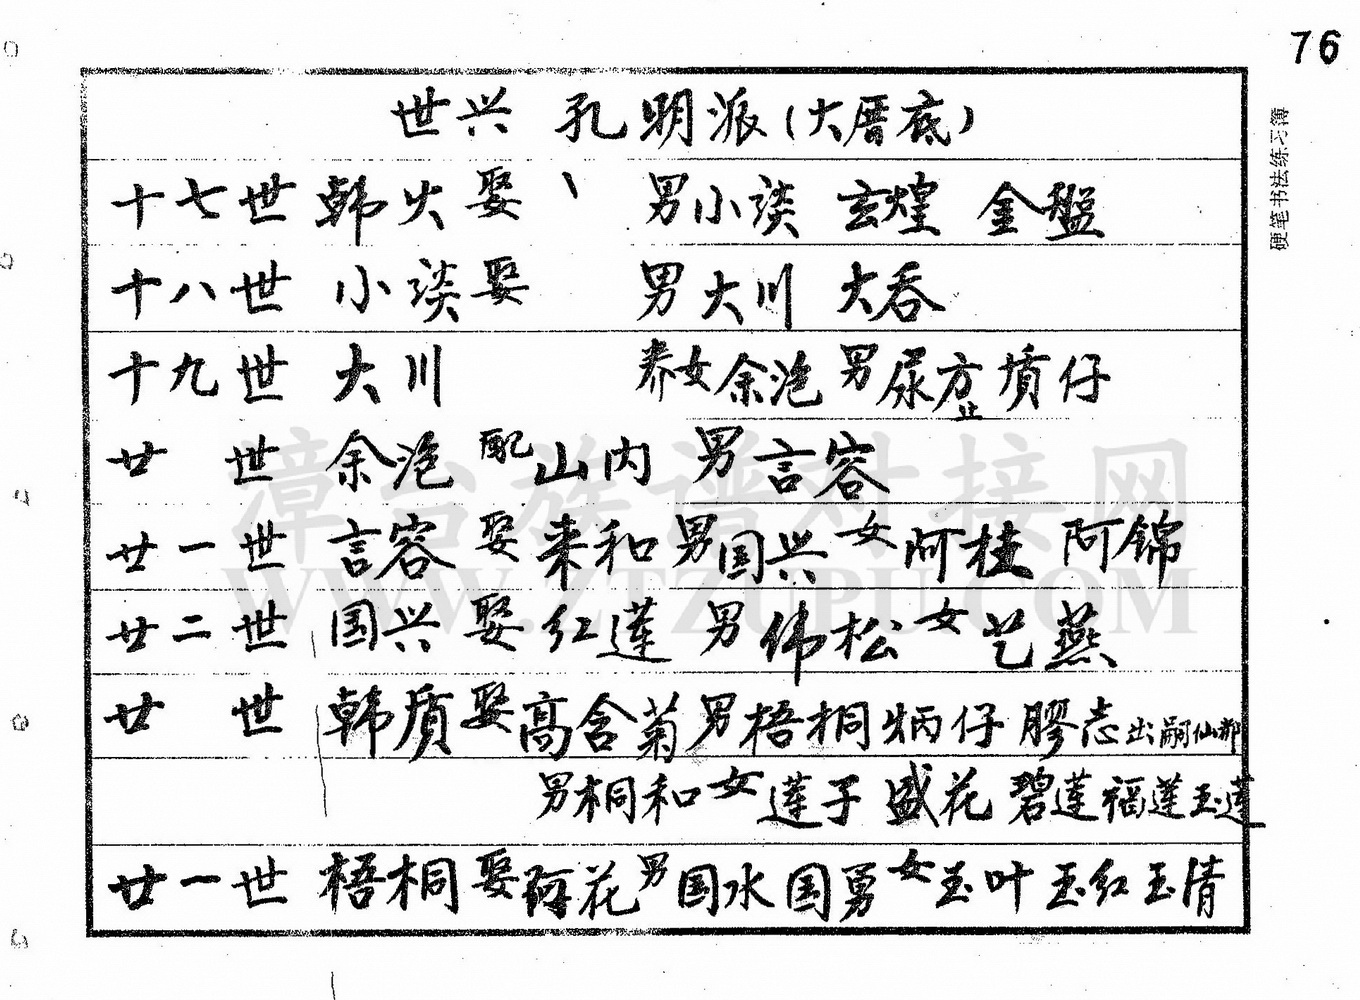 76
世兴 孔明派(大厝底)
十七世 韩火 娶、 男小谈 玄煌 金盤
十八世 小谈 娶 男大川 大吞
十九世 大川 养女余沧 男尿方 止 质仔
廿世 余沧 配山内 男言容
廿一世 言容 娶来和 男国兴 女阿桂 阿锦
廿二世 国兴 娶红莲 男伟松 女艺燕
廿世 韩质 娶高含菊 男梧桐 炳仔 膠志出嗣仙都
男桐和 女莲子 盛花 碧莲 福莲 玉莲
廿一世 梧桐 娶荷花 男国水 国勇 女玉叶 玉红 玉清
硬笔书法练习簿
漳台族谱对接网
WWW.ZTZUPU.COM